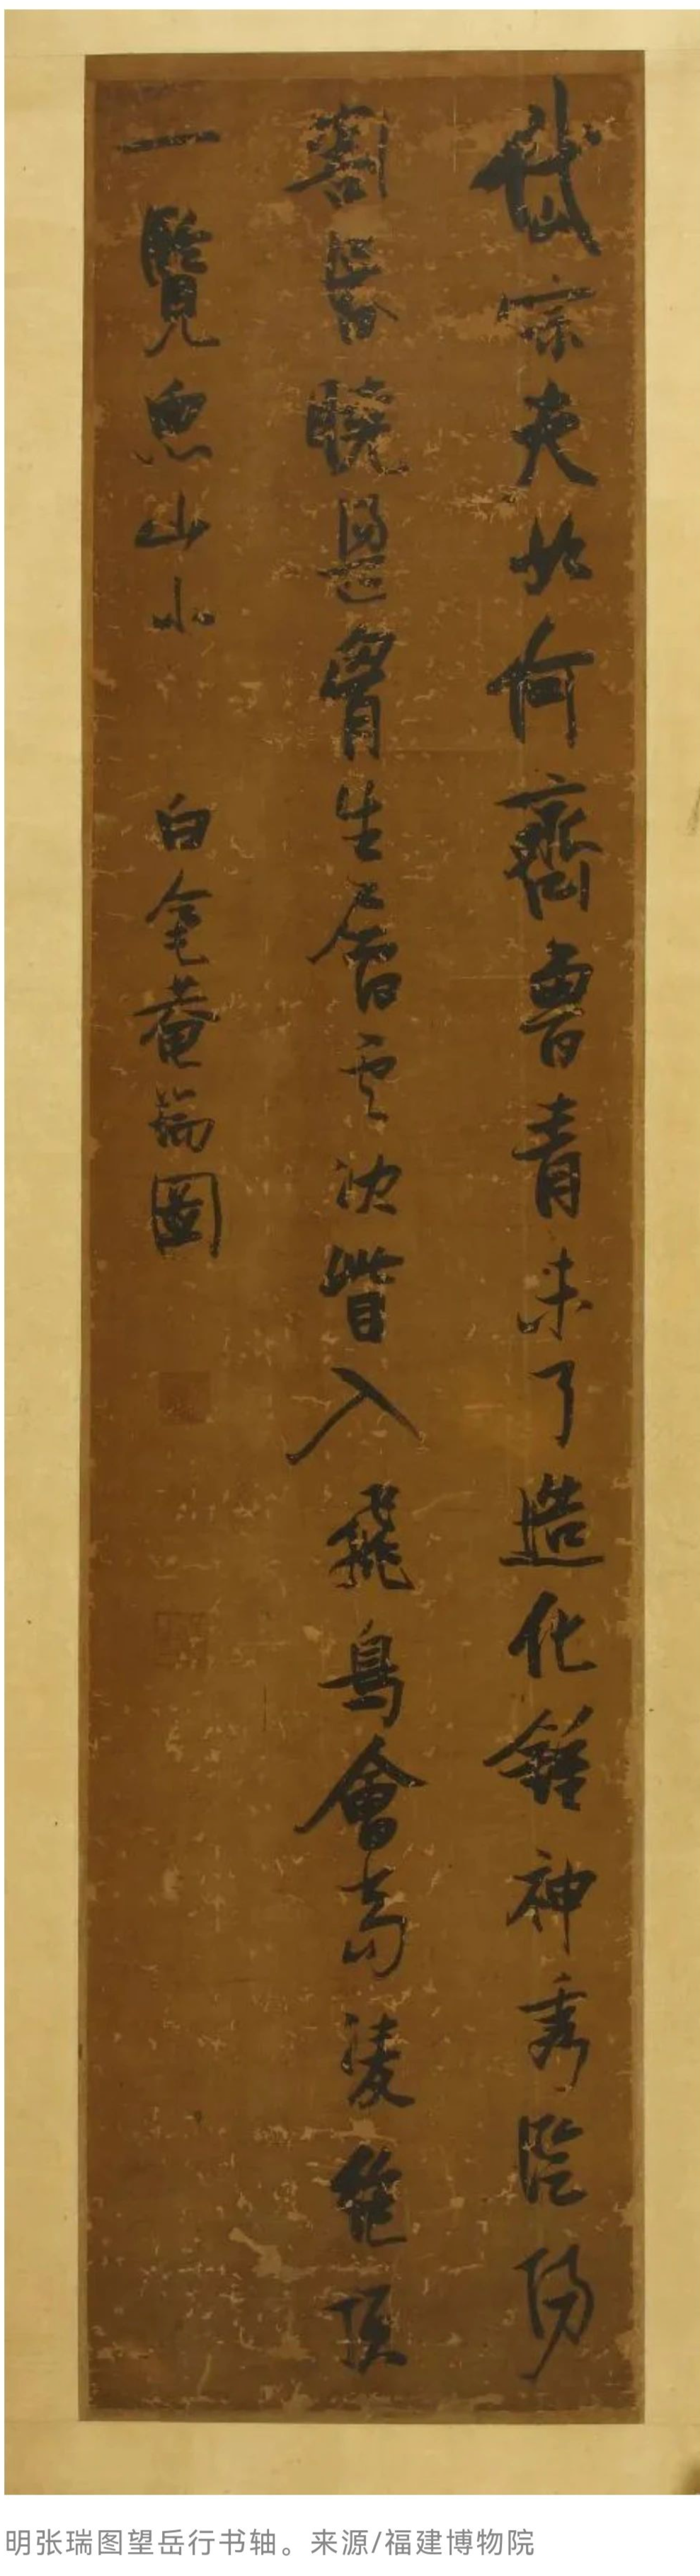 岱宗夫如何齊魯青未了造化鍾神秀陰陽
割昏曉盪胷生層雲決眥入飛鳥會當凌絕頂
一覽眾山小 白毫菴瑞圖
明张瑞图望岳行书轴。来源/福建博物院